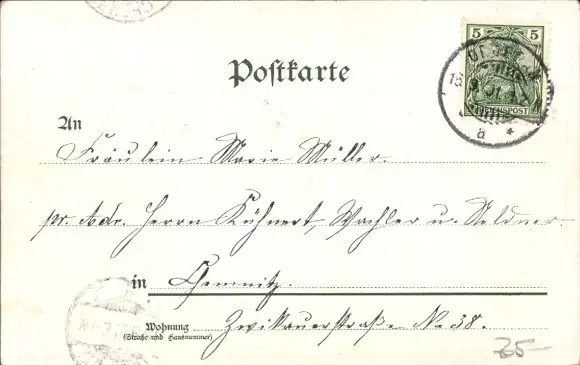 5 5
REICHSPOST
Postkarte
An
Fräulein Marie Müller.
pr. Adr. Herrn Kühnert, Wachler u. Neldner
in Chemnitz.
Wohnung Zwikauerstraße No 38.
(Straße und Hausnummer)
25-